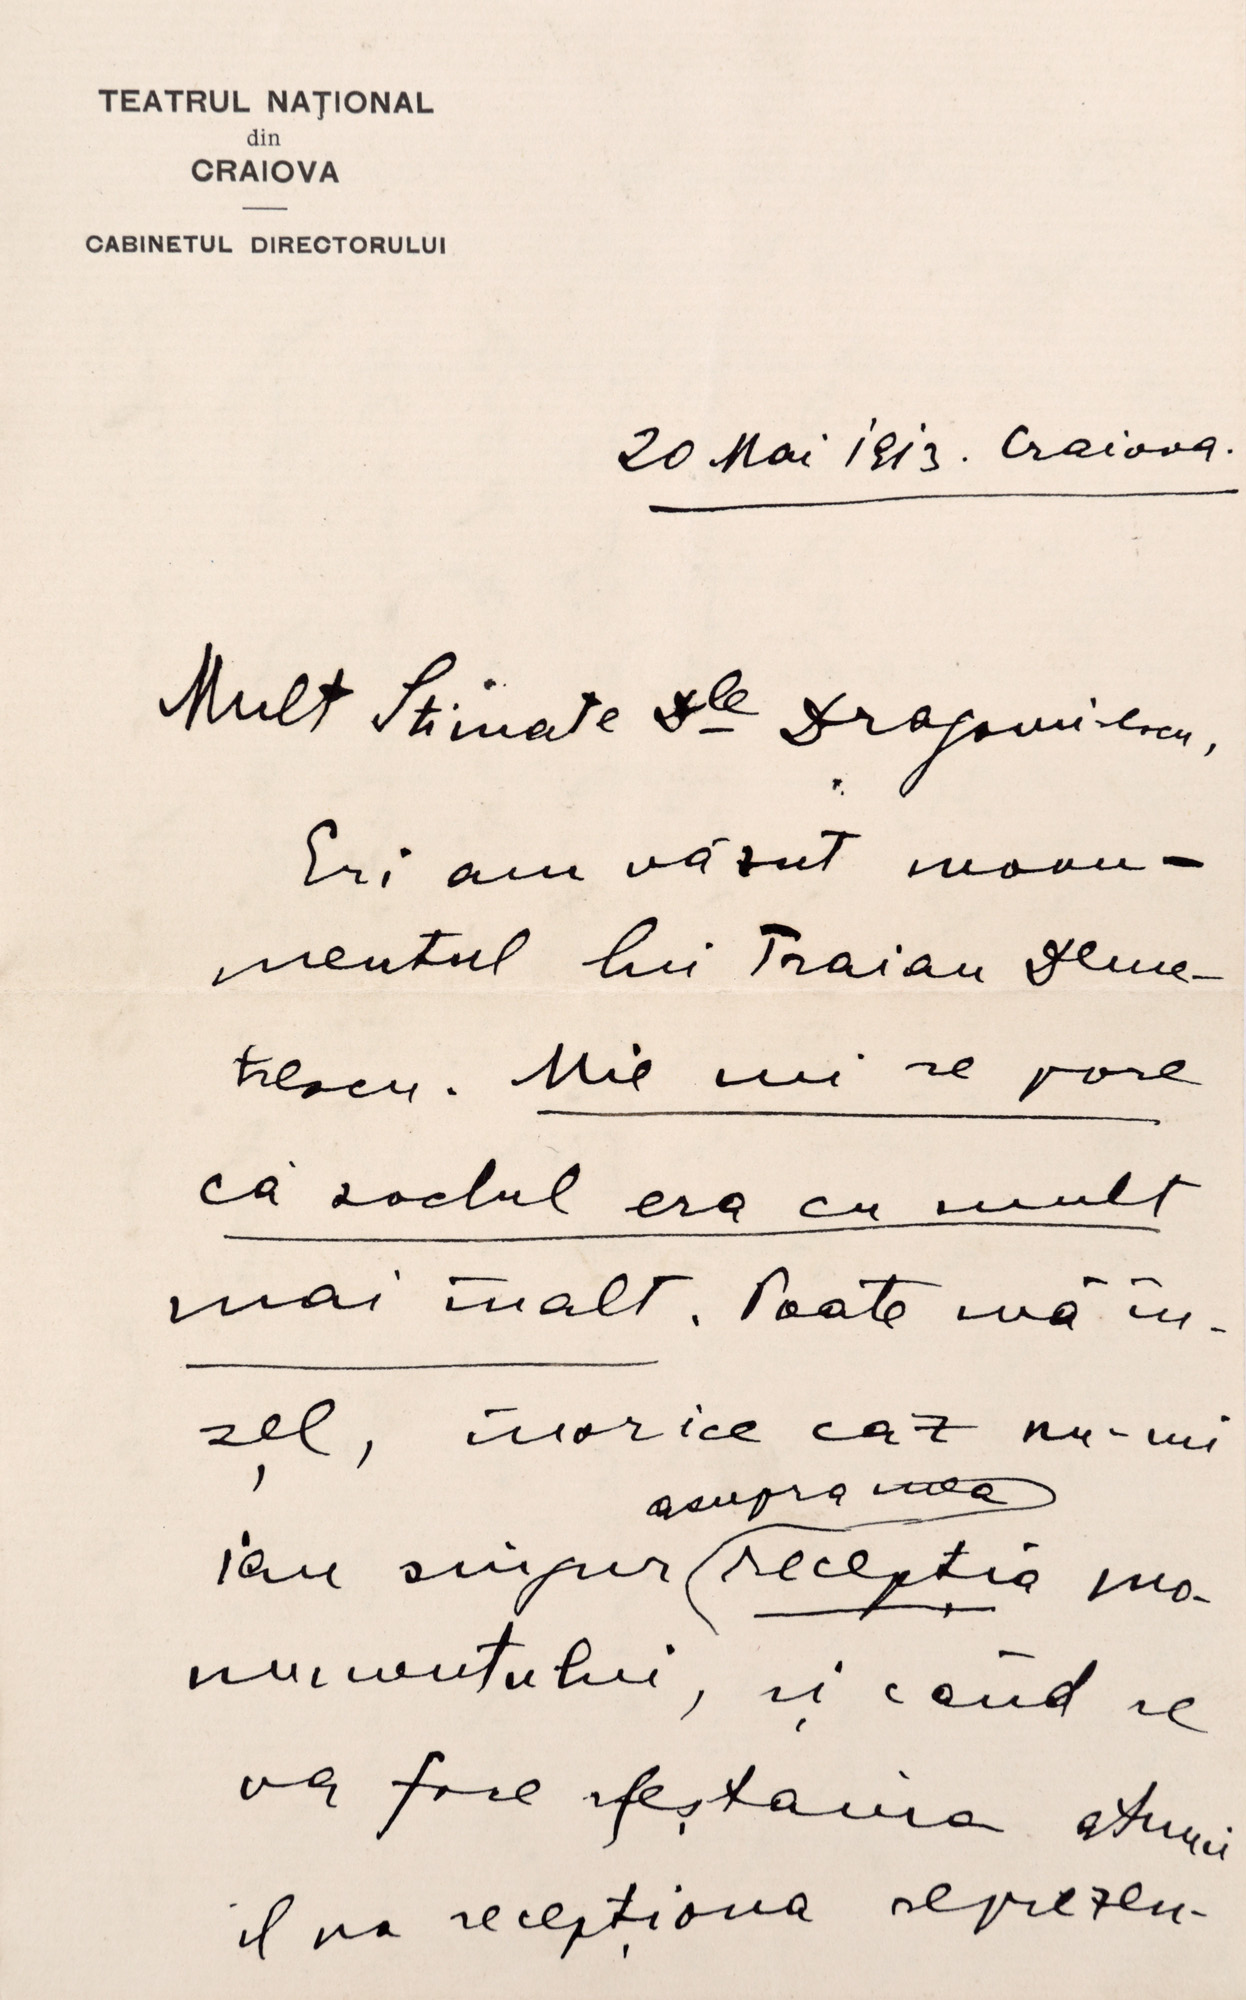 TEATRUL NAŢIONAL
din
CRAIOVA
CABINETUL DIRECTORULUI
20 Mai 1913. Craiova.
Mult Stimate Dle Dragomirescu,
Eri am văzut monu-
mentul lui Traian Deme-
trescu. Mie mi se pare
că soclul era cu mult
mai înalt. Poate mă în-
șel, înorice caz nu-mi
asupra mea
iau singur recepția mo-
numentului, și când se
va face sfeștania atunci
îl va recepționa reprezen-